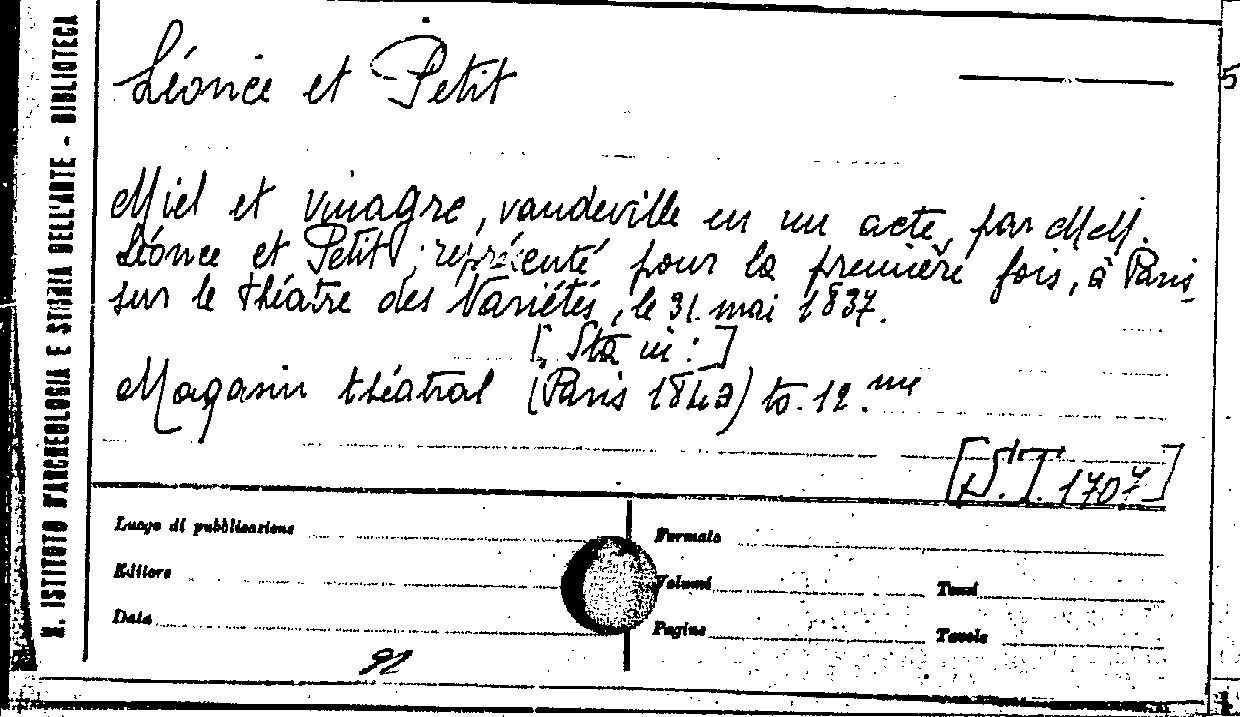 R. ISTITUTO D'ARCHEOLOGIA E STORIA DELL'ARTE - BIBLIOTECA
Léonce et Petit
5
Miel et vinagre, vaudeville en un acte, par MM.
Léonce et Petit; représenté pour la première fois, à Paris
sur le théatre des Variétés, le 31. mai 1837.
[Sta in:]
Magasin théatral (Paris 1842) to. 12.me
[S.T. 1707]
Luogo di pubblicazione
Formato
Editore
Volumi
Tomi
Data
Pagine
Tavole
92